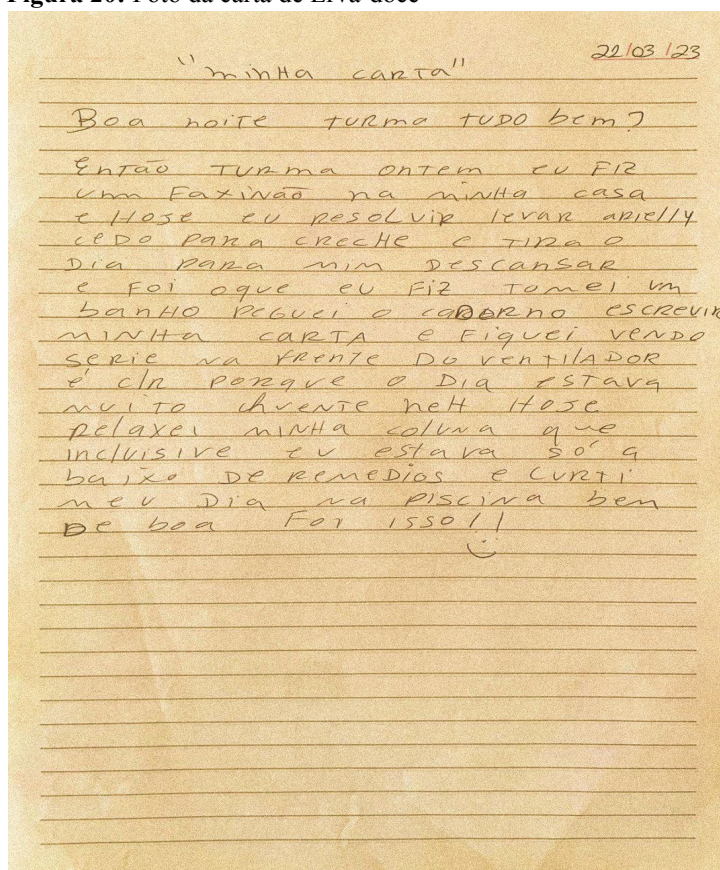 Figura 20: Foto da carta de Erva-doce
22/03/23
"minha carta"
Boa noite turma tudo bem?
Então turma ontem eu fiz
umm faxinão na minha casa
e Hoje eu resolvir levar arielly
cedo para creche e tira o
Dia para mim Descansar
e foi oque eu fiz tomei um
banho peguei o caderno escrevir
minha carta e fiquei vendo
serie na frente Do ventilador
é cln porque o Dia estava
muito chuente neh Hoje
relaxei minha coluna que
inclusive eu estava só a
baixo De remedios e curti
meu Dia na piscina bem
De boa Foi isso!!